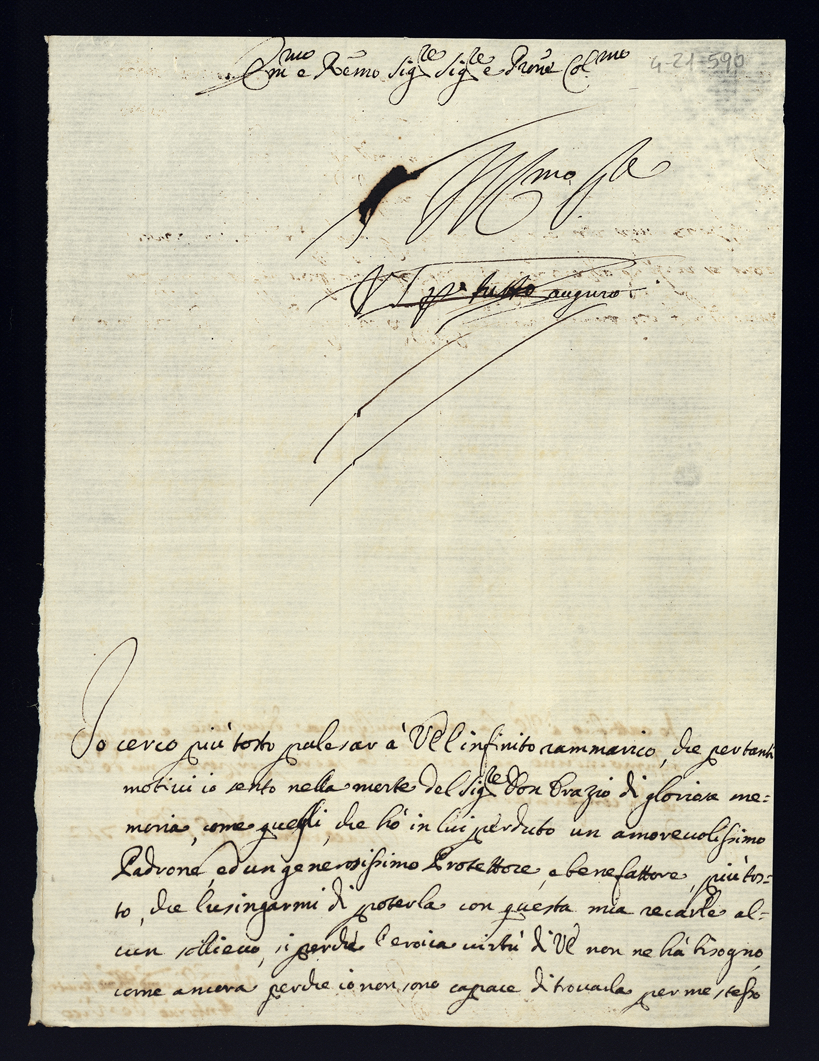 Em.mo e Re.mo Sig.re Sig.re e Pron.e Col.mo
4-21-590
tutto auguro
Io cerco più tosto palesar à VE l'infinito rammarico, che per tanti
motivi io sento nella morte del Sig.re Don Orazio di gloriosa me=
moria, come quegli, che hò in lui perduto un amorevolissimo
Padrone, ed un generosissimo Protettore, e benefattore, più tos=
to, che lusingarmi di poterla con questa mia recarle al=
cun sollievo, si perche l'eroica virtù di VE non ne hà bisogno,
come ancora perche io non sono capace di trovarla per me stesso